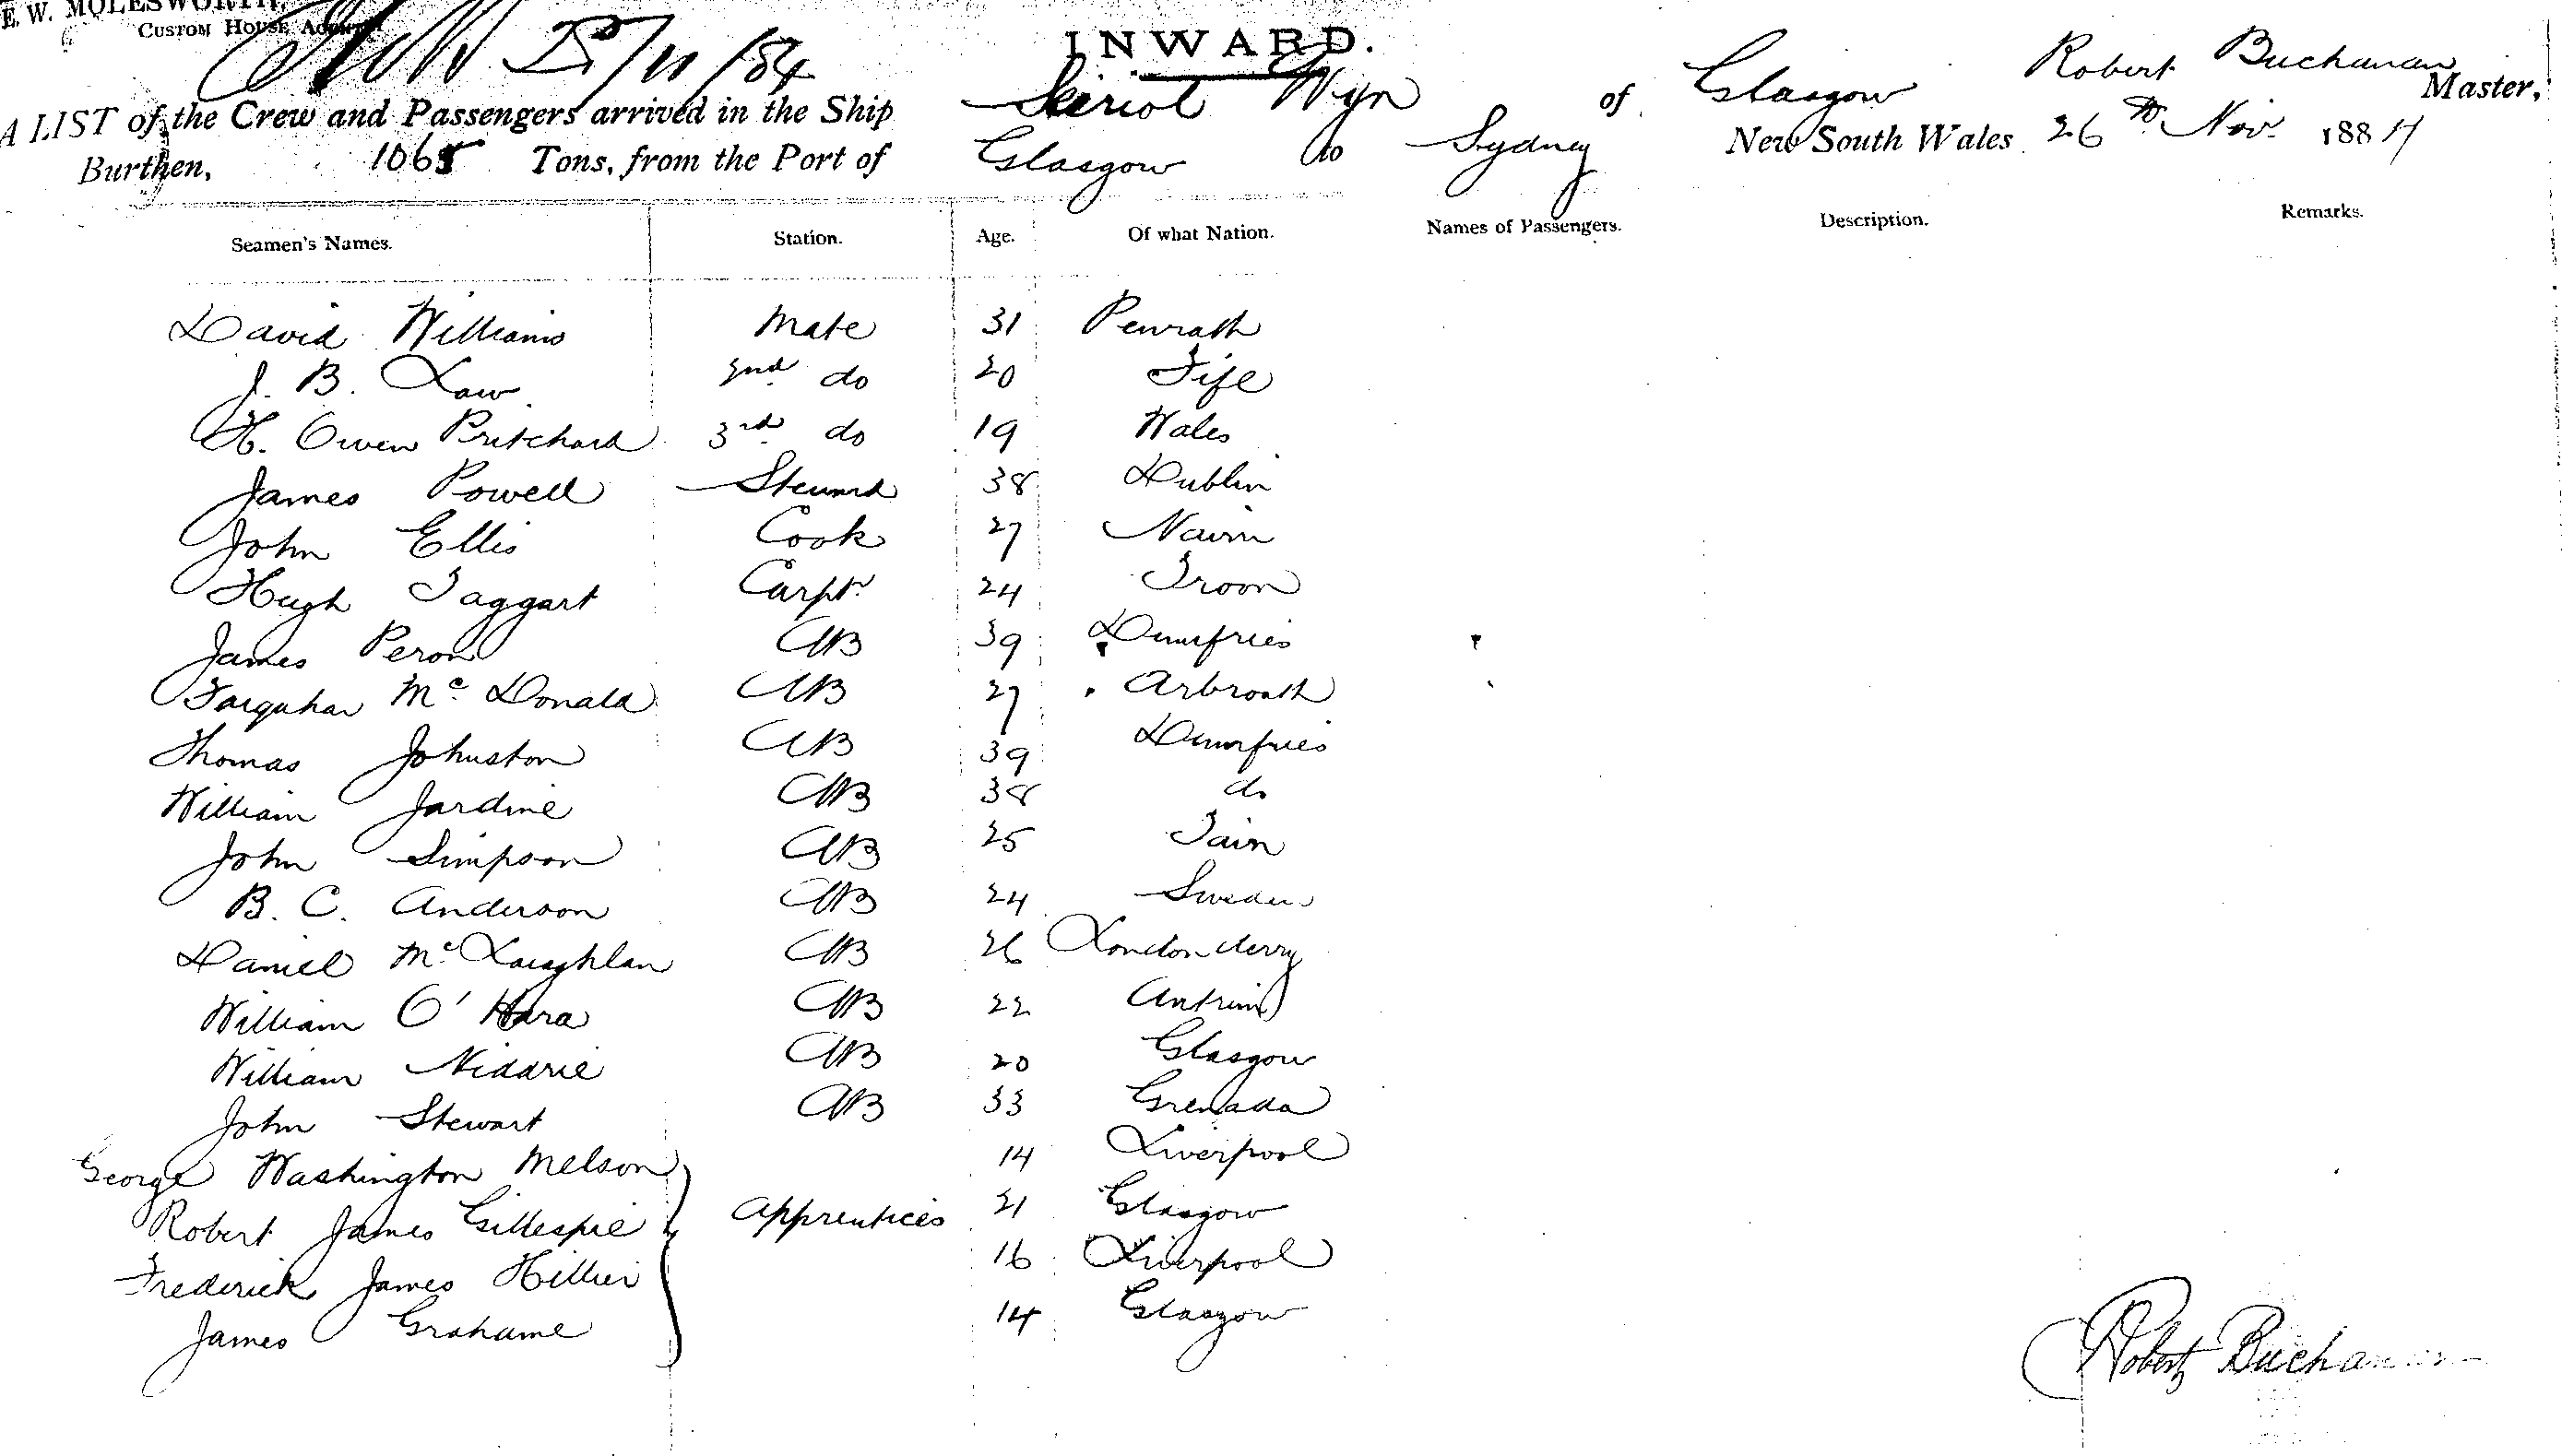 E. W. MOLESWORTH,
CUSTOM HOUSE AGENT
25/11/84
INWARD.
A LIST of the Crew and Passengers arrived in the Ship Seiriol Wyn of Glasgow Robert Buchanan Master,
Burthen, 1065 Tons, from the Port of Glasgow to Sydney New South Wales 26th Nov. 1884
Seamen's Names. Station. Age. Of what Nation. Names of Passengers. Description. Remarks.
David Williams Mate 31 Penrath
J. B. Law 2nd do 20 Fife
H. Owen Pritchard 3rd do 19 Wales
James Powell Steward 38 Dublin
John Ellis Cook 27 Nairn
Hugh Taggart Carptr 24 Troon
James Peron AB 39 Dumfries
Farquhar Mc Donald AB 27 Arbroath
Thomas Johnston AB 39 Dumfries
William Jardine AB 38 do
John Simpson AB 25 Tain
B. C. Anderson AB 24 Sweden
Daniel Mc Laughlan AB 26 Londonderry
William O'Hara AB 22 Antrim
William Niddrie AB 20 Glasgow
John Stewart AB 33 Grenada
George Washington Melson 14 Liverpool
Robert James Gillespie Apprentices 21 Glasgow
Frederick James Hillier 16 Liverpool
James Grahame 14 Glasgow
Robert Buchanan